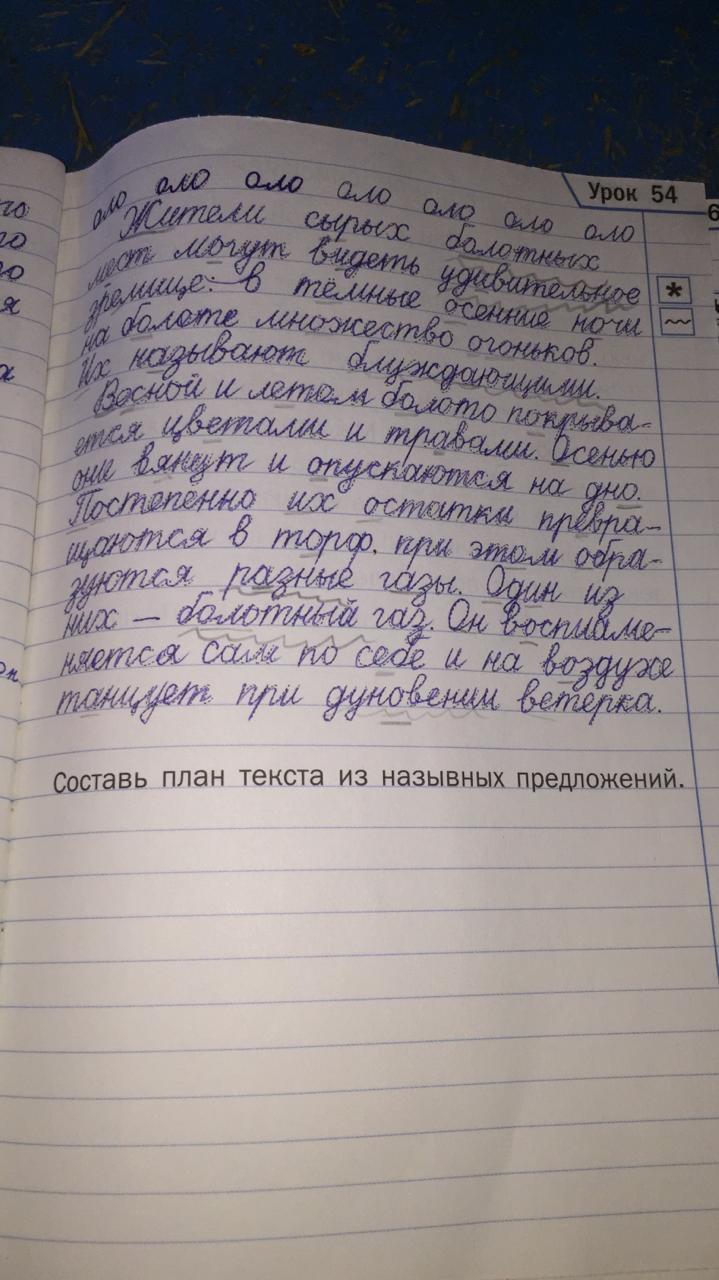 Урок 54
оло оло оло оло оло оло оло
Жители сырых болотных
мест могут видеть удивительное
зрелище: в тёмные осенние ночи
на болоте множество огоньков.
Их называют блуждающими.
Весной и летом болото покрыва-
ется цветами и травами. Осенью
они вянут и опускаются на дно.
Постепенно их остатки превра-
щаются в торф. при этом обра-
зуются разные газы. Один из
них — болотный газ. Он воспламе-
няется сам по себе и на воздухе
танцует при дуновении ветерка.
Составь план текста из назывных предложений.